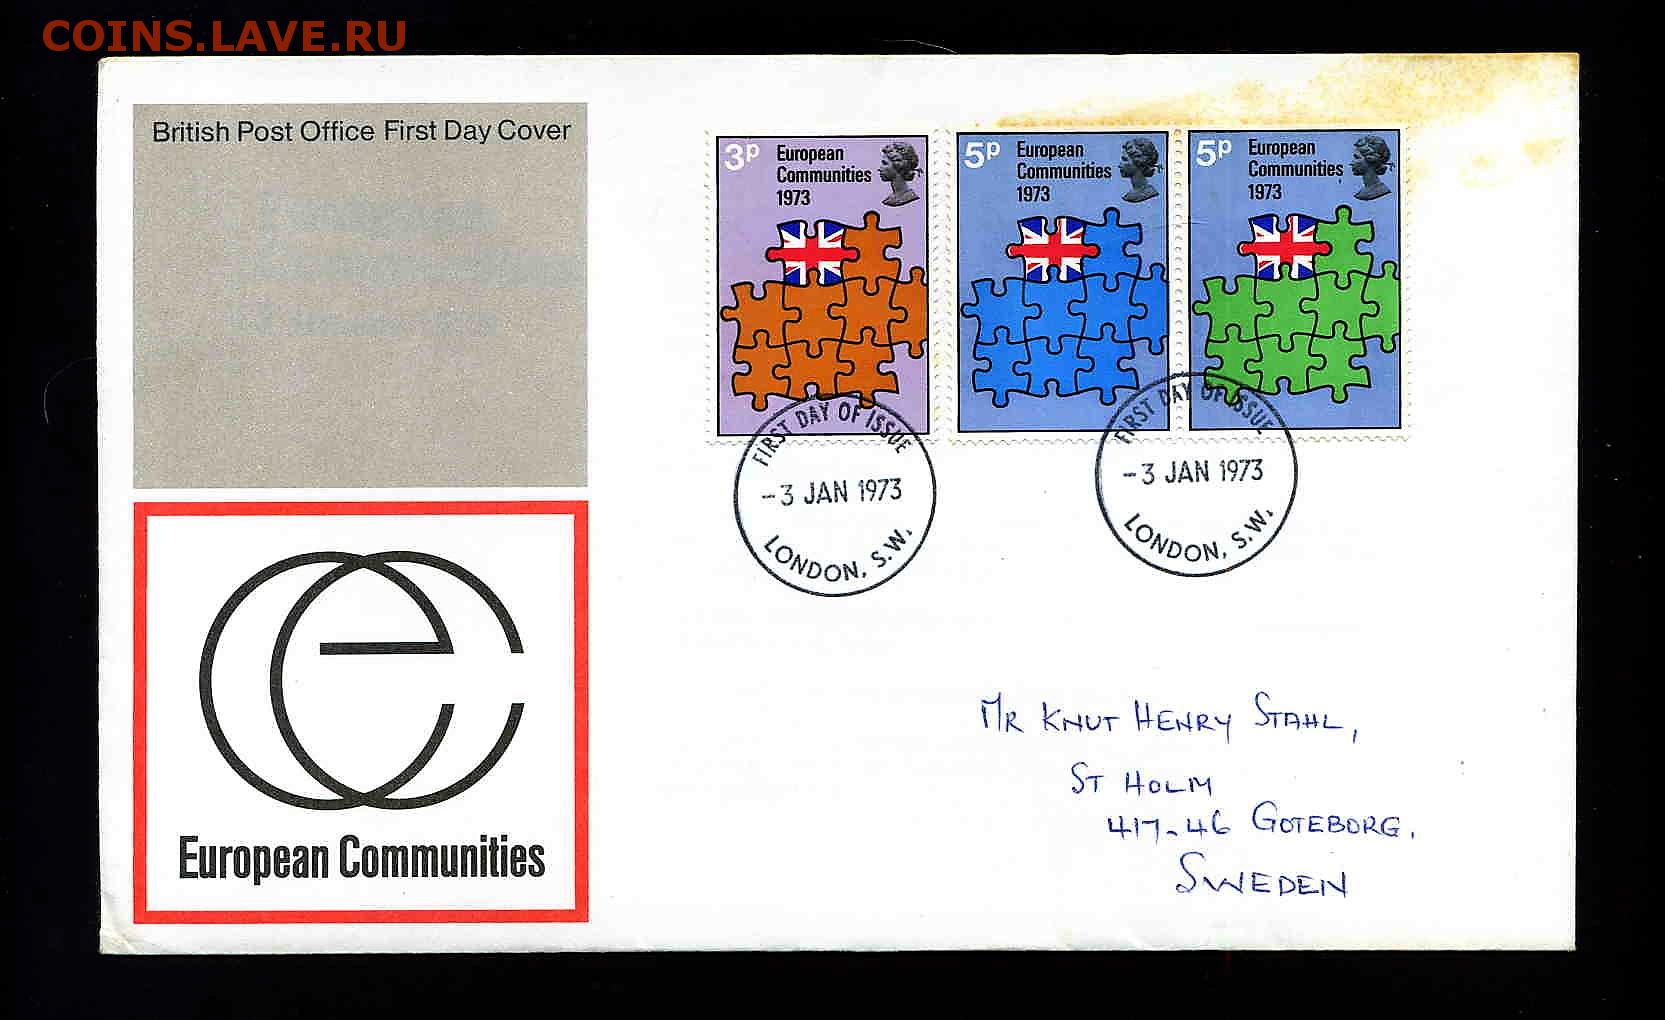 COINS.LAVE.RU
British Post Office First Day Cover
3p
European
Communities
1973
5p
European
Communities
1973
5p
European
Communities
1973
FIRST DAY OF ISSUE
-3 JAN 1973
LONDON, S.W.
FIRST DAY OF ISSUE
-3 JAN 1973
LONDON, S.W.
European Communities
MR KNUT HENRY STAHL,
ST HOLM
417-46 GOTEBORG.
SWEDEN